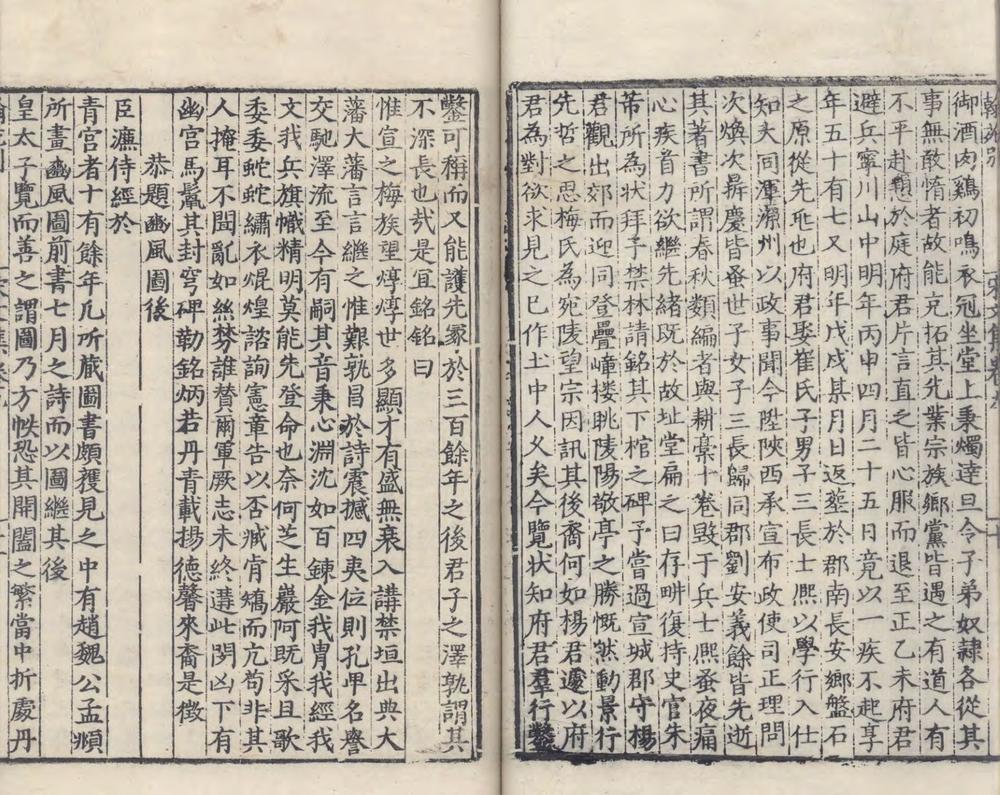 御酒肉鷄初鳴衣冠坐堂上秉燭達旦令子弟奴隸各從其
事無敢惰者故能克拓其先業宗族鄉黨皆遇之有道人有
不平赴愬於庭府君片言直之皆心服而退至正乙未府君
避兵寧川山中明年丙申四月二十五日竟以一疾不起享
年五十有七又明年戊戌某月日返塟於郡南長安鄉盤石
之原從先兆也府君娶崔氏子男子三長士熈以學行入仕
知大同渾源州以政事聞今陞陝西承宣布政使司正理問
次煥次昪慶皆蚤世子女子三長歸同郡劉安義餘皆先逝
其著書所謂春秋類編者與耕稾十卷毀于兵士熈蚤夜痛
心疾首力欲繼先緒既於故址堂扁之曰存畊復持史官朱
芾所為狀拜予禁林請銘其下棺之碑予嘗過宣城郡守楊
君觀出郊而迎同登疊嶂樓眺陵陽敬亭之勝慨然動景行
先哲之思梅氏為宛陵望宗因訊其後裔何如楊君遽以府
君為對欲求見之已作土中人乂矣今覽狀知府君羣行鑿
鑿可稱而又能護先冢於三百餘年之後君子之澤孰謂其
不深長也哉是宜銘銘曰
惟宣之梅族望焞焞世多顯才有盛無衰入講禁垣出典大
藩大藩言言繼之惟艱孰昌於詩震撼四夷位則孔卑名譽
交馳澤流至今有嗣其音秉心淵沉如百鍊金我冑我經我
文我兵旗幟精明莫能先登命也奈何芝生巖阿既采且歌
委委蛇蛇繡衣焜煌諮詢憲章告以否臧肯矯而亢苟非其
人掩耳不聞亂如絲棼誰贊爾軍厥志未終遘此閔凶下有
幽宮馬鬣其封穹碑勒銘炳若丹青載揚德馨來裔是徴
恭題豳風圖後
臣濂侍經於
青宮者十有餘年凡所蔵圖書頗獲見之中有趙魏公孟頫
所畫豳風圖前書七月之詩而以圖繼其後
皇太子覽而善之謂圖乃方帙恐其開闔之繁當中折處丹